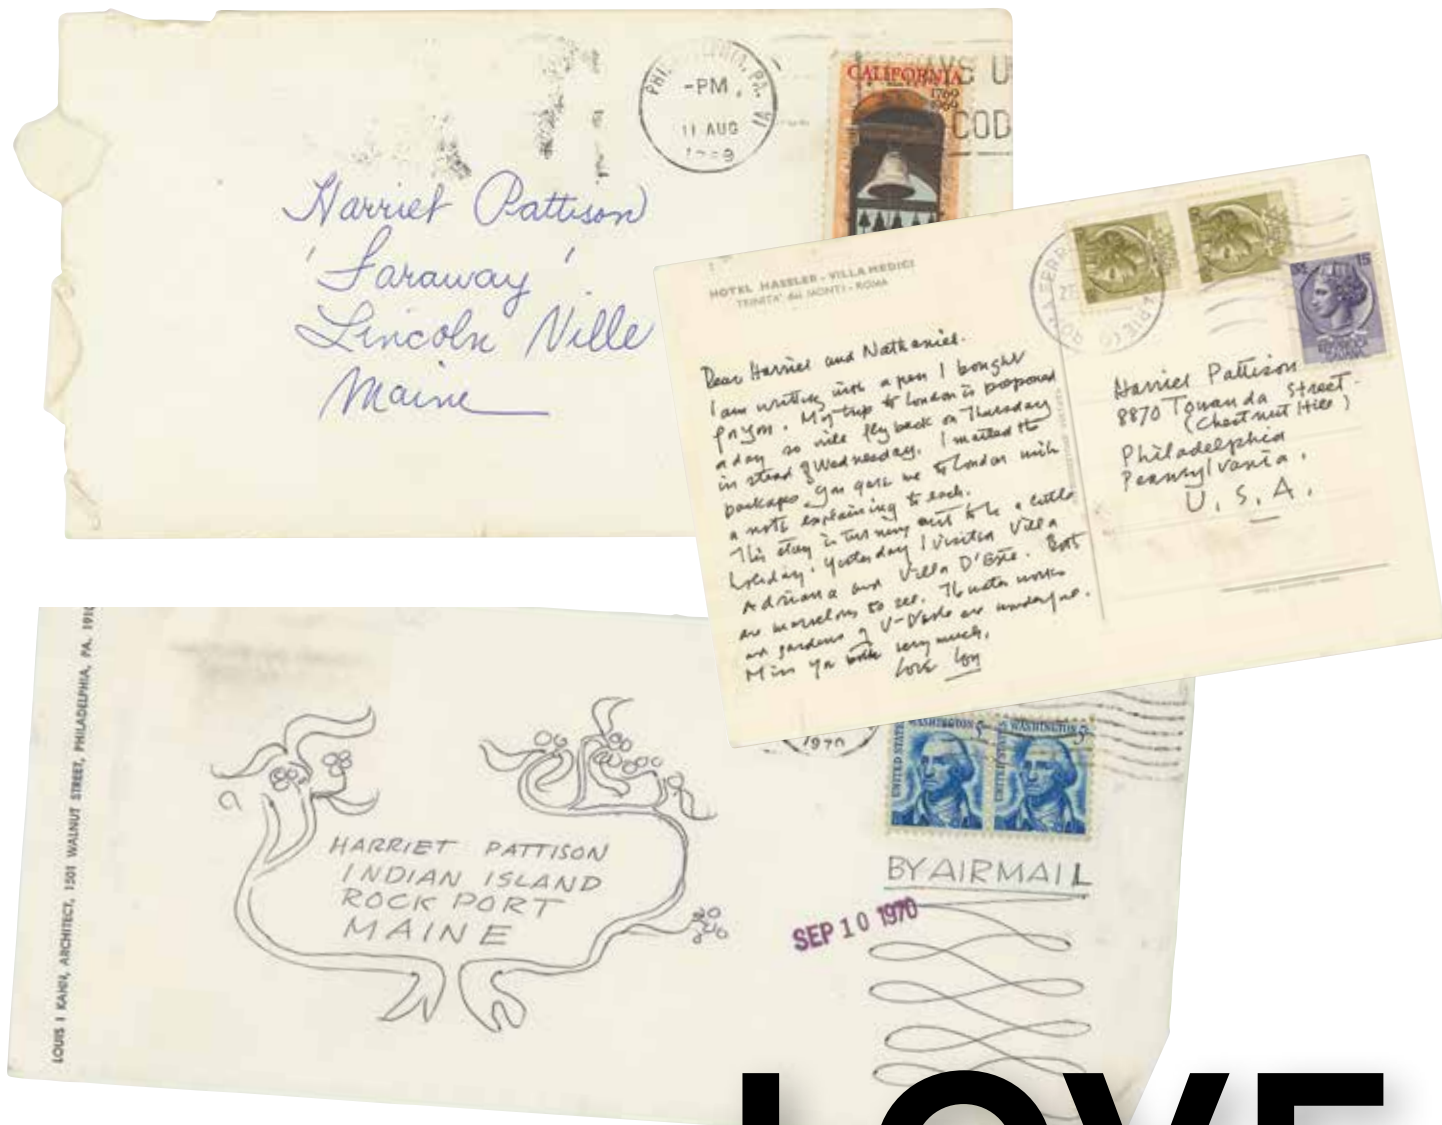 PHILADELPHIA, PA.
-PM
11 AUG
CALIFORNIA
1769
1969
COD
Harriet Pattison
'Faraway'
Lincoln Ville
Maine
HOTEL HASSLER - VILLA MEDICI
TRINITA' dei MONTI - ROMA
Dear Harriet and Nathaniel.
I am writing with a pen I bought
for you. My trip to London is postponed
a day so will fly back on Thursday
in stead of Wednesday. I mailed the
packages you gave me to London with
a note explaining to each.
This stay is turning out to be a little
holiday. Yesterday I visited Villa
Adriana and Villa D'Este. Both
are marvelous to see. The water works
and gardens of V-D'este are wonderful.
Miss you very much.
Love Lou
15
Harriet Pattison
8870 Towanda Street.
(Chestnut Hill)
Philadelphia
Pennsylvania.
U.S.A.
LOUIS I KAHN, ARCHITECT, 1501 WALNUT STREET, PHILADELPHIA, PA. 191
HARRIET PATTISON
INDIAN ISLAND
ROCK PORT
MAINE
1970
UNITED STATES WASHINGTON 5c
UNITED STATES WASHINGTON 5c
BY AIRMAIL
SEP 10 1970
LOVE